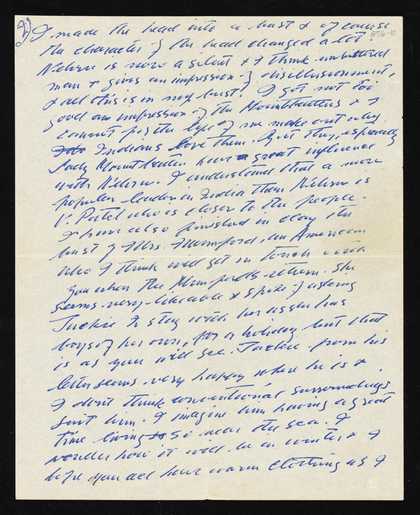 2) I made the head into a bust & of course
the character of the head changed a lot.
Nehru is now a silent & I think embittered
man & gives an impression of disillusionment,
& all this is in my bust. I got not too
good an impression of the Mountbattens & I
cannot for the life of me make out why
Indians love them. But they, especially
Lady Mountbatten have great influence
with Nehru. I understand that a more
popular leader in India than Nehru is
V. Patel who is closer to the people.
I have also finished in clay the
bust of Mrs. Mumford, an American
who I think will get in touch with
you when the Mumfords return. She
seems very likeable & spoke of asking
Jackie to stay with her as she has
boys of her own, for a holiday but that
is as you will see. Jackie from his
letter seems very happy where he is &
I don't think conventional surroundings
suit him. I imagine him having a great
time living so near the sea. I
wonder how it will be in winter & I
hope you all have warm clothing as I